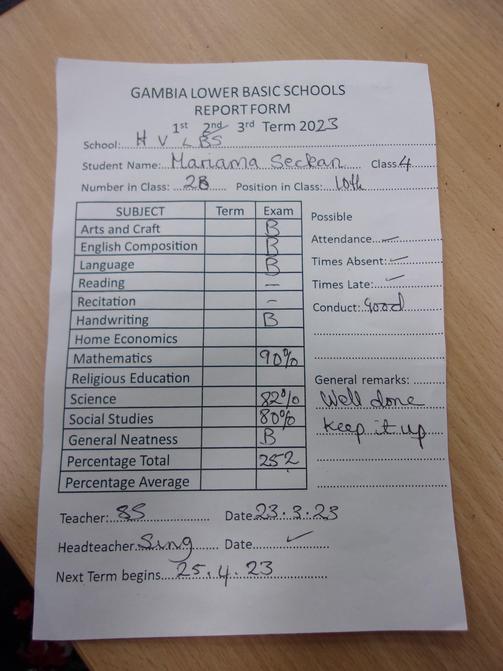 GAMBIA LOWER BASIC SCHOOLS
REPORT FORM
1st 2nd 3rd Term 2023
School: H V L BS
Student Name: Mariama Seckan Class 4
Number in Class: 28 Position in Class: 10th
SUBJECT Term Exam
Arts and Craft B
English Composition B
Language B
Reading –
Recitation –
Handwriting B
Home Economics
Mathematics 90%
Religious Education
Science 82%
Social Studies 80%
General Neatness B
Percentage Total 252
Percentage Average
Possible
Attendance
Times Absent:
Times Late:
Conduct: Good
General remarks:
Well done
Keep it up
Teacher: SS Date 23.3.23
Headteacher Sing Date
Next Term begins 25.4.23